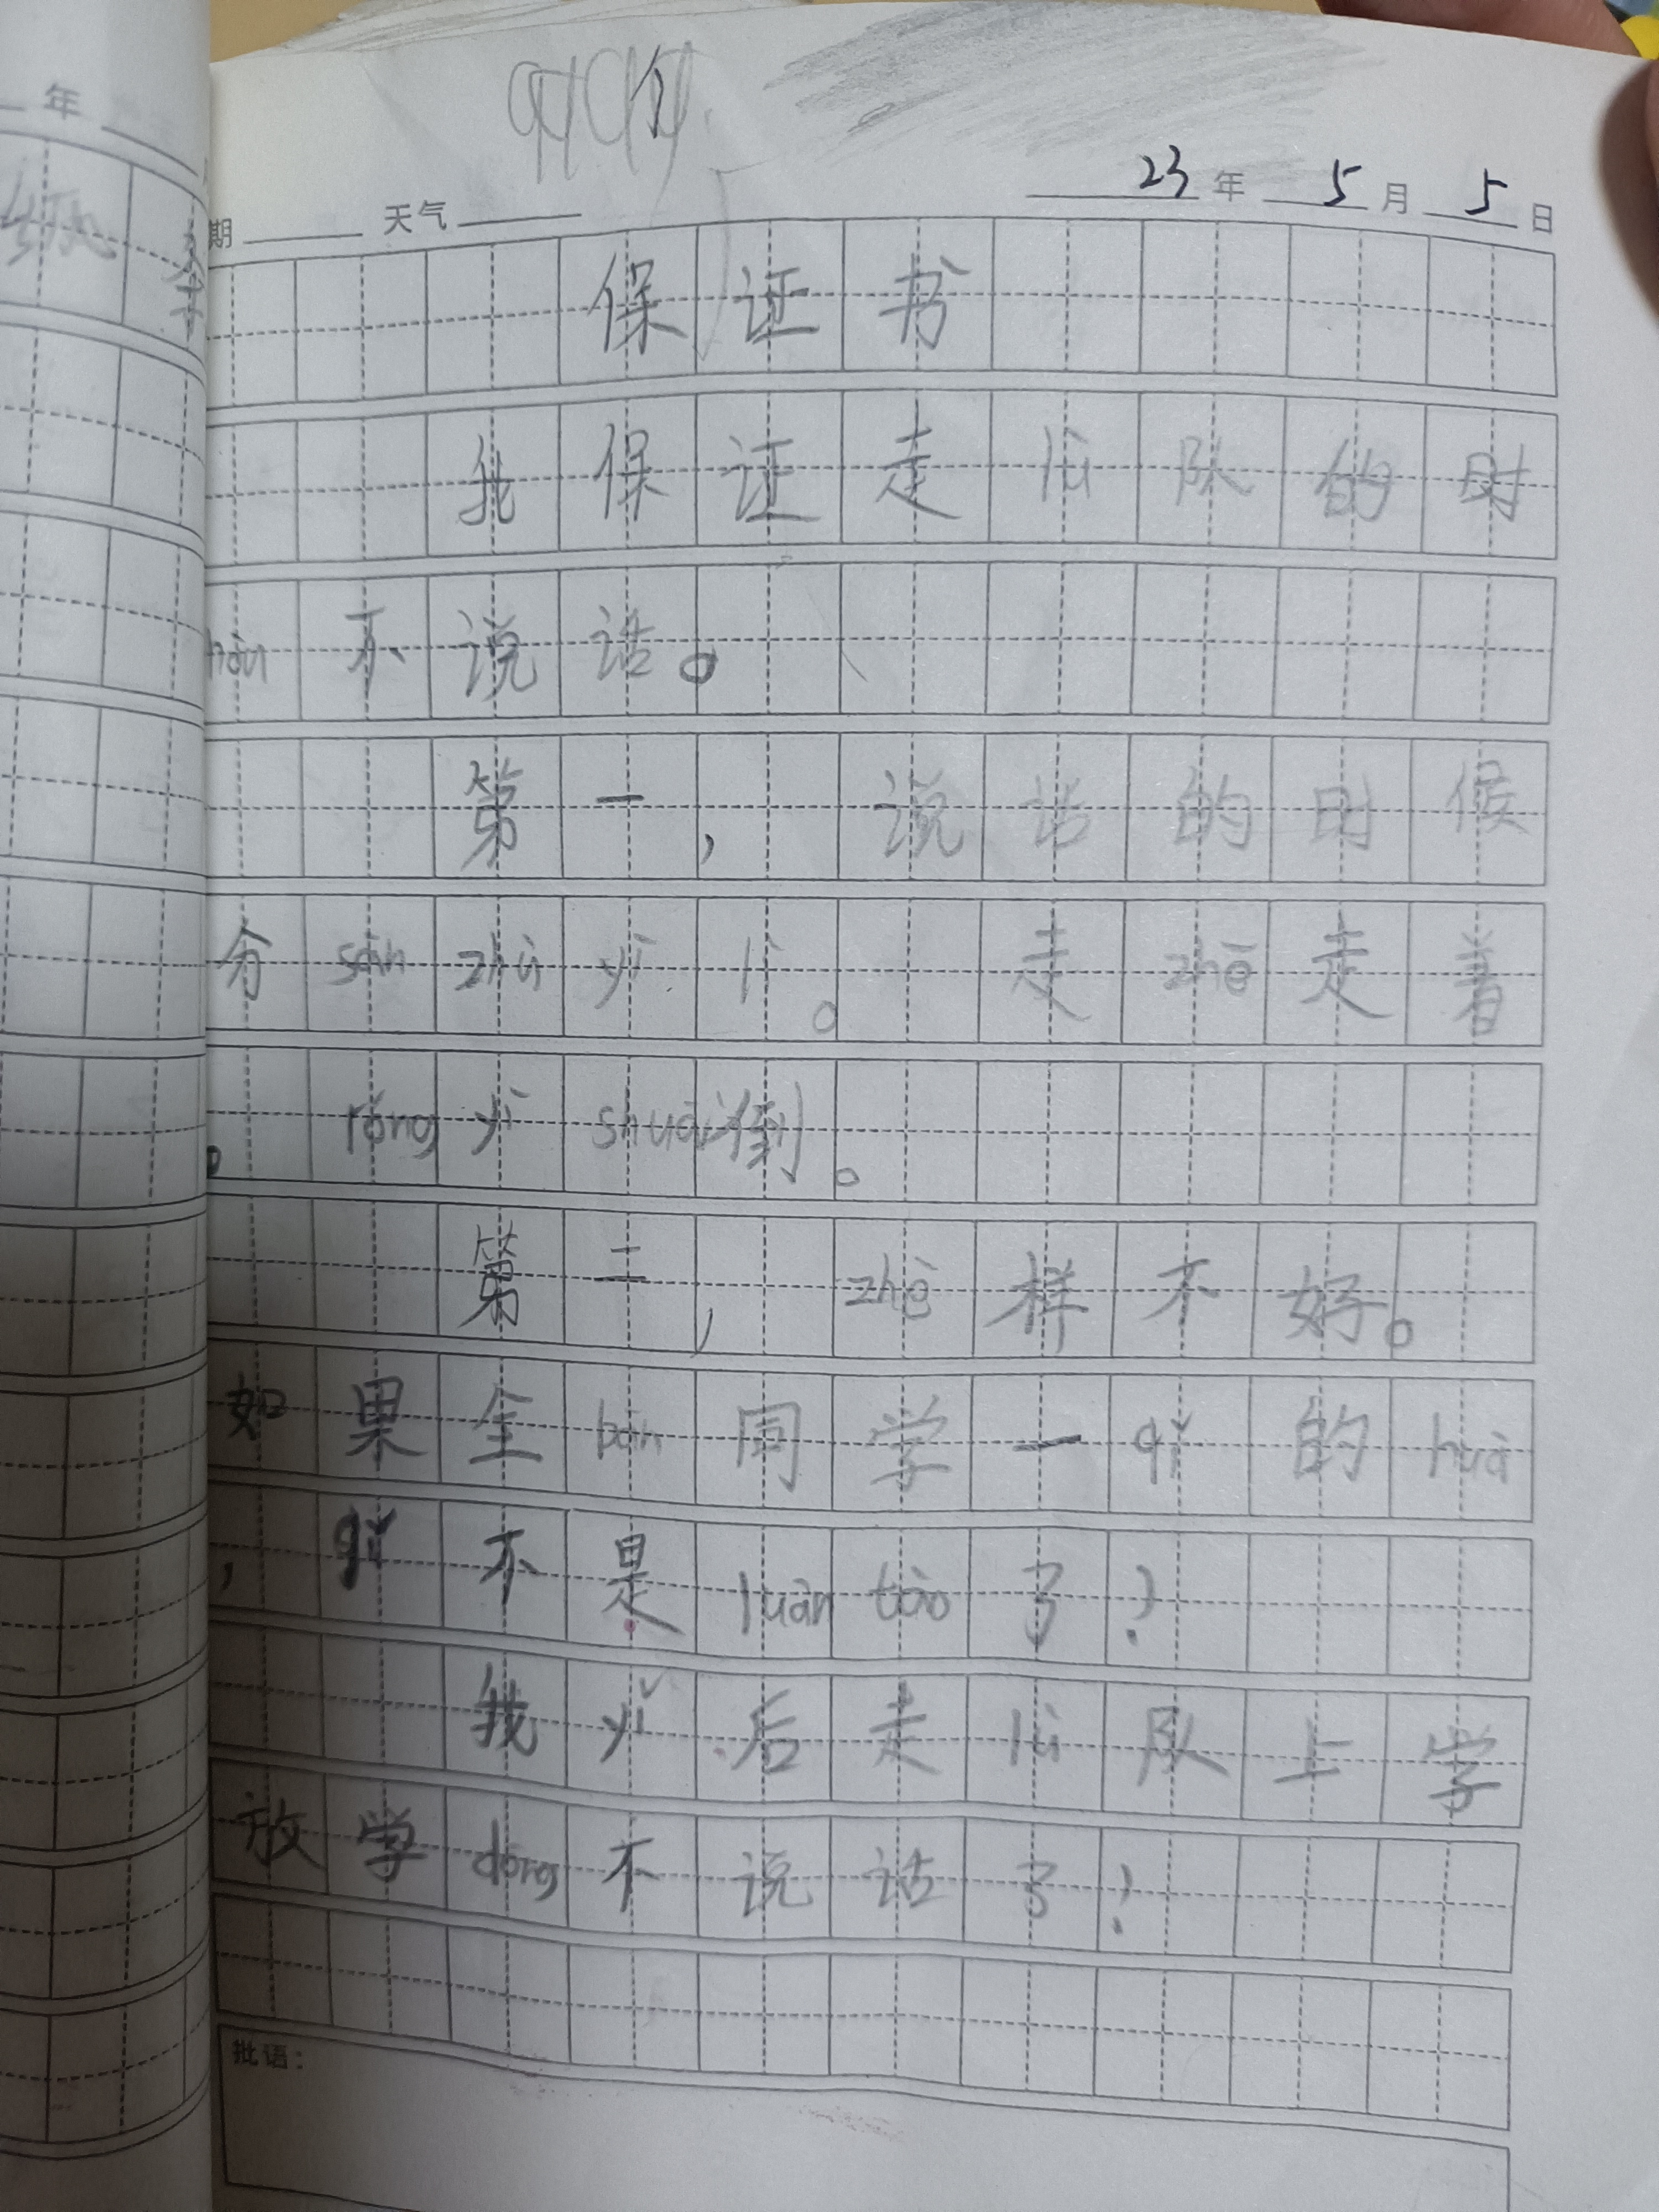 年
期 天气 23 年 5 月 5 日
保证书
我保证走lù队的时
hòu不说话。
第一，说话的时候
分sàn zhù yì lì。走zhē走着
。róng yì shuāi倒。
第二，zhè样不好。
如果全bān同学一qǐ的huà
，qǐ不是luàn tào了？
我yǐ后走lù队上学
放学dōng不说话了！
批语：